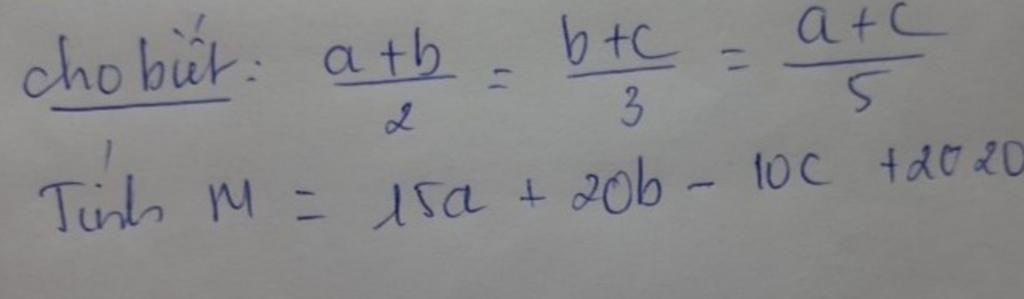 cho biết: a+b/2 = b+c/3 = a+c/5
Tính M = 15a + 20b - 10c + 2020